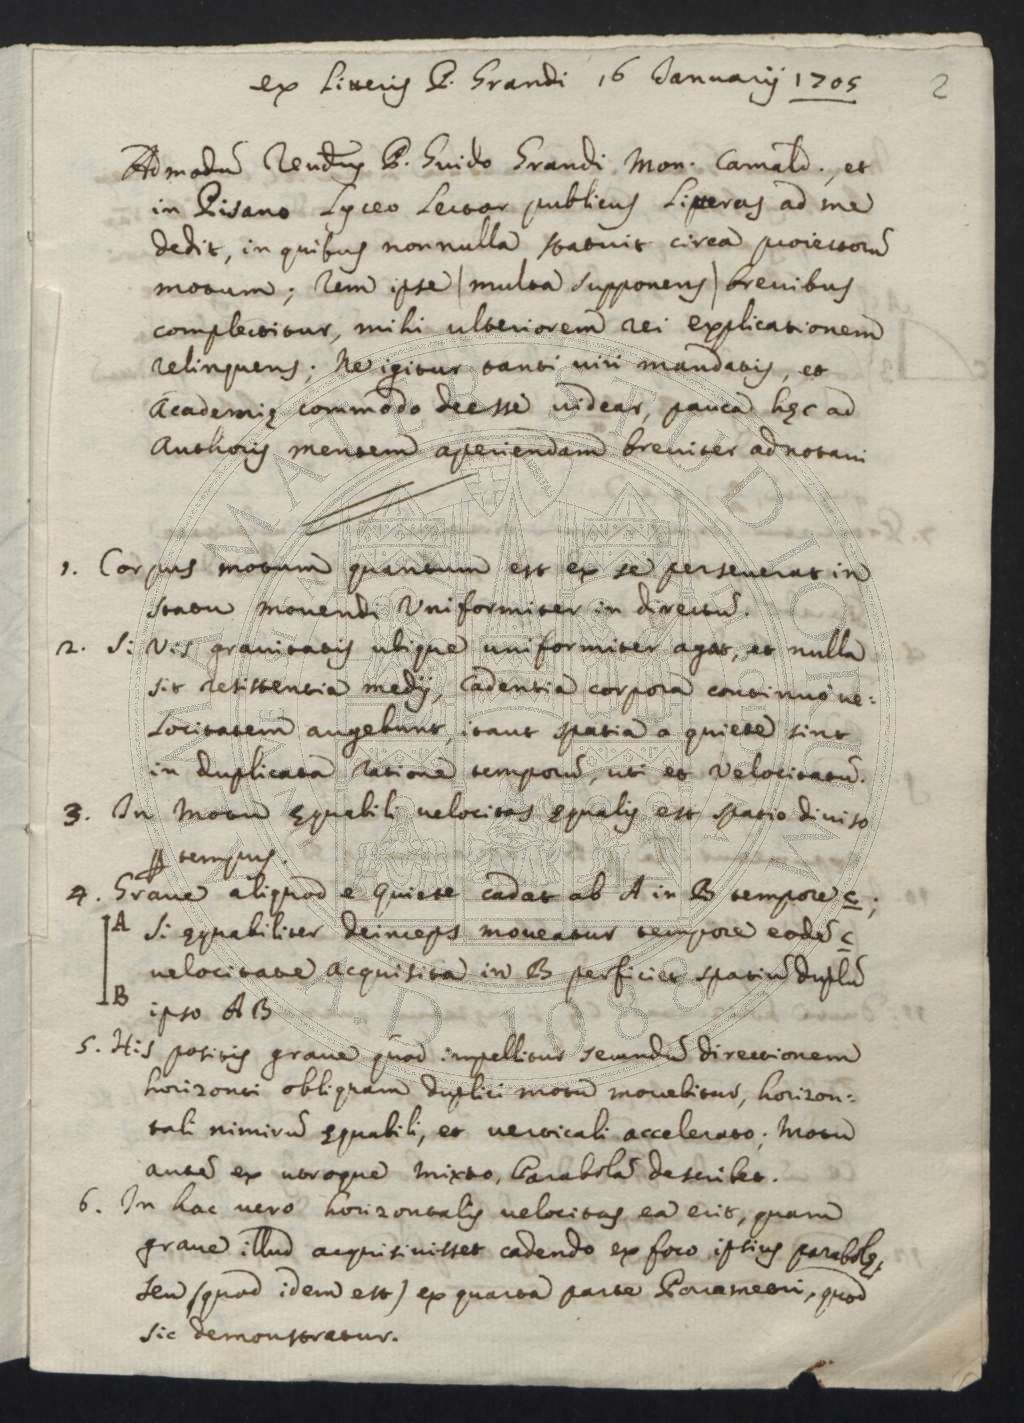 ex Literis P. Grandi 16 Januarij 1705
2
Admodũ Rendũs P. Guido Grandi Mon. Camald., et
in Pisano Lyceo Lector publicus Literas ad me
dedit, in quibus nonnulla statuit circa proiectorũ
motum; Rem ipse (multa supponens) brevibus
complectitur, mihi ulteriorem rei explicationem
relinquens; Ne igitur tanti viri mandatis, et
Academię commodo deesse videar, pauca hęc ad
Authoris mentem aperiendam breviter adnotavi
1. Corpus motum quantum est ex se perseverat in
statu movendi Uniformiter in directũ.
2. Si Vis gravitatis utique uniformiter agat, et nulla
sit resistentia medij, Cadentia corpora continuò ve:
locitatem augebunt, itaut spatia a quiete sint
in duplicata ratione temporũ, uti et Velocitatũ.
3. In Motu ęquabili velocitas ęqualis est spatio diviso
p tempus.
4. Grave aliquod e Quiete cadat ab A in B tempore c;
A
Si ęquabiliter deinceps moveatur tempore eodẽ c
velocitate acquisita in B perficiet spatiũ duplũ
B
ipso AB
5. His positis grave quod impellitur secundũ directionem
horizonti obliquam duplici motu movebitur, horizon:
tali nimirũ ęquabili, et verticali accelerato; Motu
autẽ ex utroque mixto, Parabolã describet.
6. In hac vero horizontalis velocitas ea erit, quam
grave illud acquisivisset cadendo ex foco ipsius parabolę,
seu (quod idem est) ex quarta parte Parametri, quod
sic demonstratur.